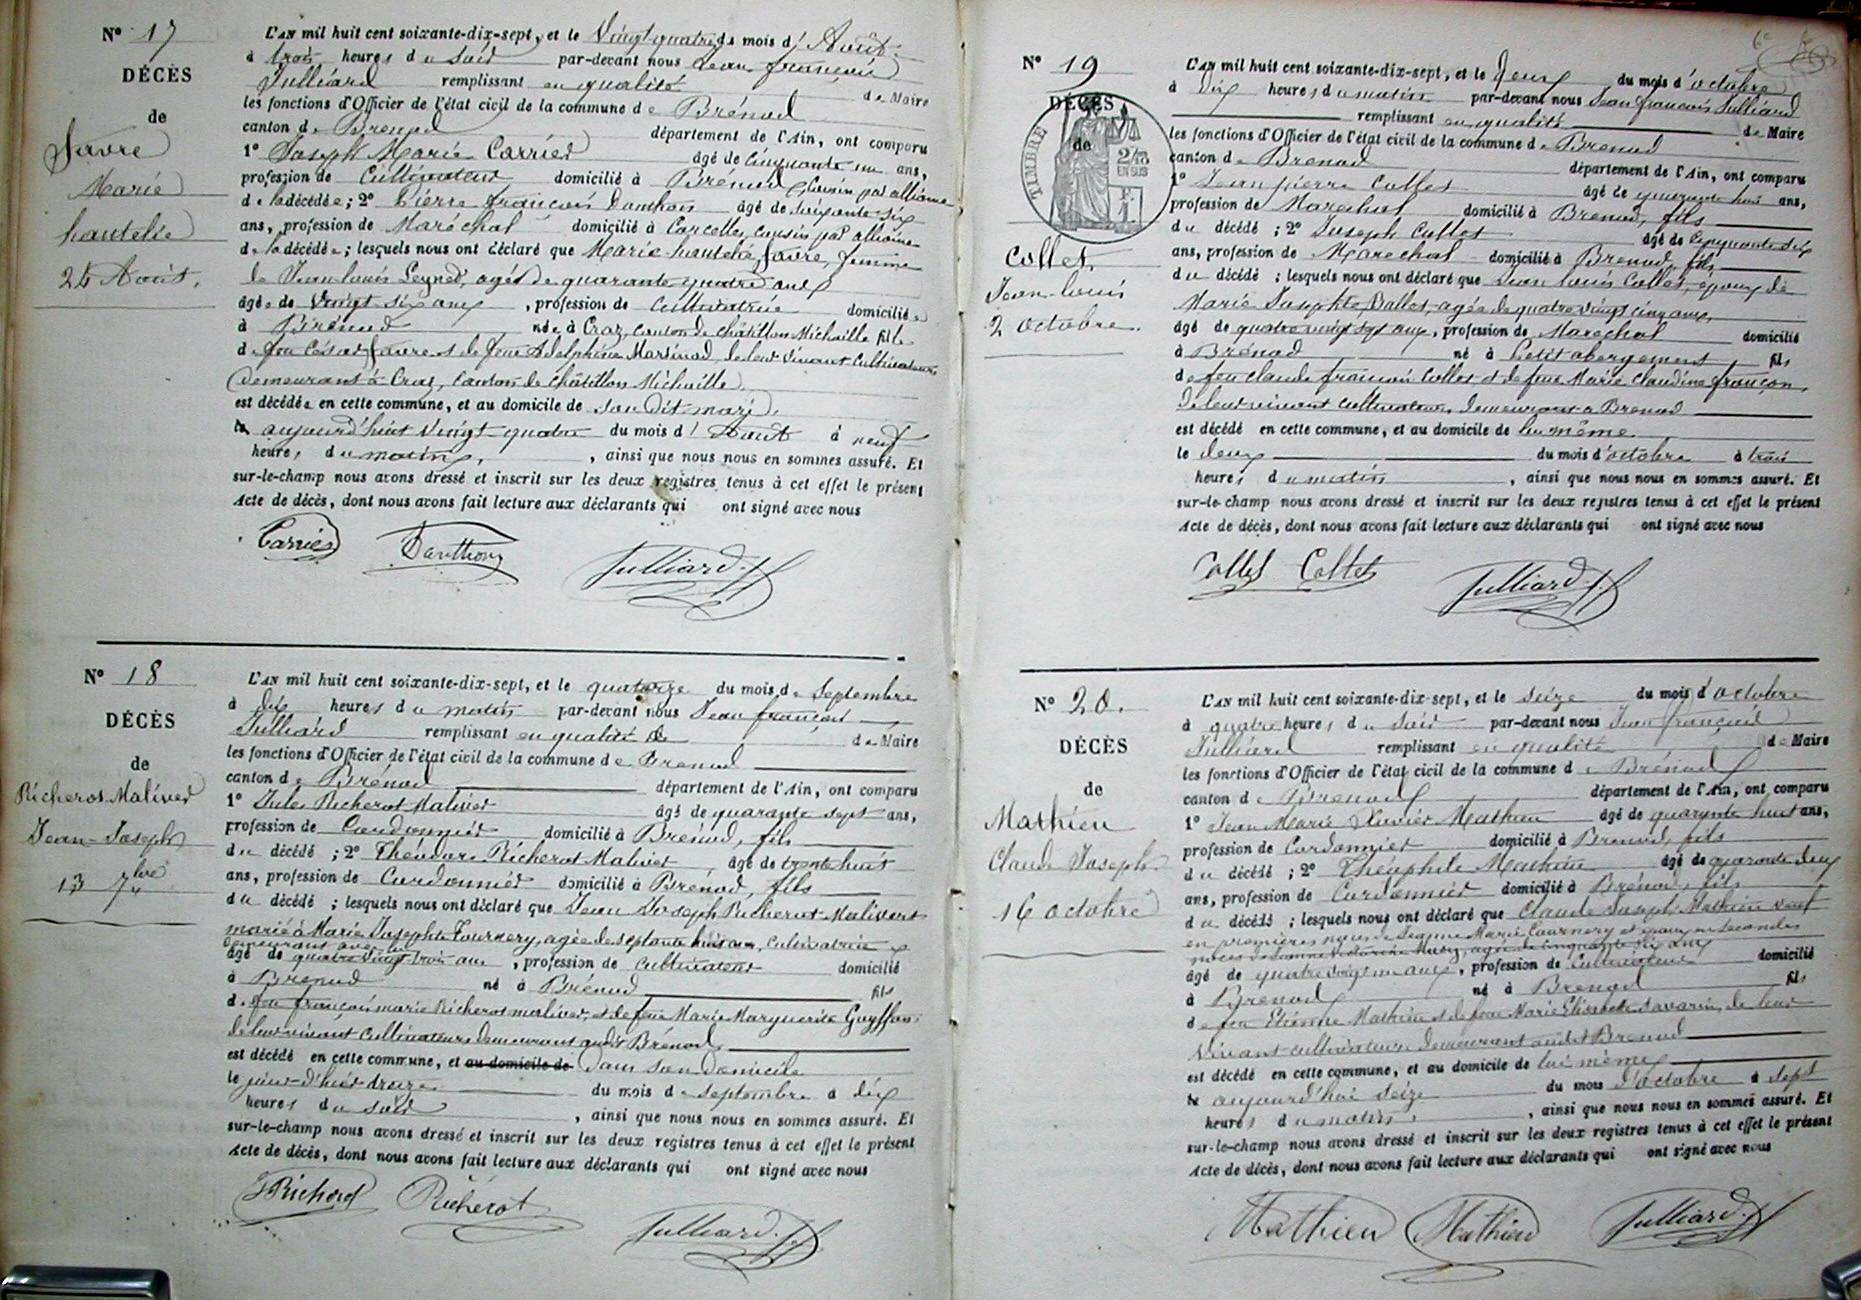 N° 17
DÉCÈS
de
Favre
Marie
hautelie
24 Août.
L'AN mil huit cent soixante-dix-sept, et le Vingt quatre du mois d' Août
à trois heures du soir par-devant nous Jean françois
Julliard remplissant en qualité de Maire
les fonctions d'Officier de l'état civil de la commune de Brénod
canton de Brenod département de l'Ain, ont comparu
1° Joseph Marie Carrier âgé de Cinquante un ans,
profession de Cultivateur domicilié à Brénod, Cousin par alliance
de la décédée; 2° Pierre françois Danthon âgé de soixante six
ans, profession de Maréchal domicilié à Corcelles, cousin par alliance
de la décédée; lesquels nous ont déclaré que Marie hautelie Favre, femme
de Jean louis Leynod, agé de quarante quatre ans
âgée de Vingt six ans, profession de cultivatrice domiciliée
à Brénod née à Craz, canton de Châtillon Michaille fille
de feu César Favre et de feue Adelphine Marinod, de leur vivant Cultivateurs
demeurant à Craz, Canton de Châtillon Michaille.
est décédée en cette commune, et au domicile de son dit mari,
le aujourd'hui vingt quatre du mois d' Août à neuf
heures du matin, ainsi que nous nous en sommes assuré. Et
sur-le-champ nous avons dressé et inscrit sur les deux registres tenus à cet effet le présent
Acte de décès, dont nous avons fait lecture aux déclarants qui ont signé avec nous
Carrier Danthon Julliard
N° 18
DÉCÈS
de
Richerot Malivert
Jean-Joseph
13 7bre
L'AN mil huit cent soixante-dix-sept, et le quatorze du mois de Septembre
à dix heures du matin par-devant nous Jean françois
Julliard remplissant en qualité de de Maire
les fonctions d'Officier de l'état civil de la commune de Brenod
canton de Brénod département de l'Ain, ont comparu
1° Jules Richerot Malivert âgé de quarante sept ans,
profession de Cordonnier domicilié à Brénod, fils
du décédé; 2° Théodore Richerot Malivert âgé de trente huit
ans, profession de Cordonnier domicilié à Brénod, fils
du décédé; lesquels nous ont déclaré que Jean Joseph Richerot-Malivert
marié à Marie Josephte Tournery, agée de septante huit ans, cultivatrice
demeurant avec lui
âgé de quatre vingt trois ans, profession de cultivateur domicilié
à Brenod né à Brénod fils
de feu françois marie Richerot malivert, et de feue Marie Marguerite Guyffon,
de leur vivant cultivateurs demeurant audit Brénod,
est décédé en cette commune, et au domicile de Dans son domicile
le jour d'hier treize du mois de septembre à dix
heures du soir, ainsi que nous nous en sommes assuré. Et
sur-le-champ nous avons dressé et inscrit sur les deux registres tenus à cet effet le présent
Acte de décès, dont nous avons fait lecture aux déclarants qui ont signé avec nous
Richerot Richerot Julliard
N° 19
DÉCÈS
de
TIMBRE
2/10
EN SUS
Collet,
Jean-louis
2 octobre.
L'AN mil huit cent soixante-dix-sept, et le Deux du mois d'octobre
à Dix heures du matin par-devant nous Jean françois Julliard
remplissant en qualité de Maire
les fonctions d'Officier de l'état civil de la commune de Brenod
canton de Brenod département de l'Ain, ont comparu
1° Jean pierre Collet âgé de quarante huit ans,
profession de Marechal domicilié à Brenod, fils
du décédé; 2° Joseph Collet âgé de cinquante six
ans, profession de Marechal domicilié à Brénod, fils
du décédé; lesquels nous ont déclaré que Jean louis Collet, epoux de
Marie Josephte Ballet, agée de quatre vingt cinq ans,
âgé de quatre vingt sept ans, profession de Maréchal domicilié
à Brénod né à Petit abergement fils
de feu Claude françois Collet et de feue Marie Claudine françon,
de leur vivant cultivateurs, demeurant à Brenod
est décédé en cette commune, et au domicile de lui même
le deux du mois d'octobre à trois
heures du matin, ainsi que nous nous en sommes assuré. Et
sur-le-champ nous avons dressé et inscrit sur les deux registres tenus à cet effet le présent
Acte de décès, dont nous avons fait lecture aux déclarants qui ont signé avec nous
Collet Collet Julliard
N° 20.
DÉCÈS
de
Mathieu
Claude Joseph
16 octobre
L'AN mil huit cent soixante-dix-sept, et le seize du mois d'octobre
à quatre heures du soir par-devant nous Jean françois
Julliard remplissant en qualité de Maire
les fonctions d'Officier de l'état civil de la commune de Brénod
canton de Brenod département de l'Ain, ont comparu
1° Jean Marie Xavier Mathieu âgé de quarante huit ans,
profession de Cordonnier domicilié à Brenod, fils
du décédé; 2° Théophile Mathieu âgé de quarante deux
ans, profession de Cordonnier domicilié à Brénod, fils
du décédé; lesquels nous ont déclaré que Claude Joseph Mathieu veuf
en premières noces de Jeanne Marie Tournery et epoux en secondes
noces de Jeanne Victorine agée de cinquante six ans
âgé de quatre vingt un ans, profession de Cultivateur domicilié
à Brenod né à Brenod fils
de feu Etienne Mathieu et de feue Marie Elisabeth Savarin, de leur
vivant cultivateurs demeurant audit Brenod
est décédé en cette commune, et au domicile de lui même
le aujourd'hui seize du mois d'octobre à sept
heures du matin, ainsi que nous nous en sommes assuré. Et
sur-le-champ nous avons dressé et inscrit sur les deux registres tenus à cet effet le présent
Acte de décès, dont nous avons fait lecture aux déclarants qui ont signé avec nous
Mathieu Mathieu Julliard